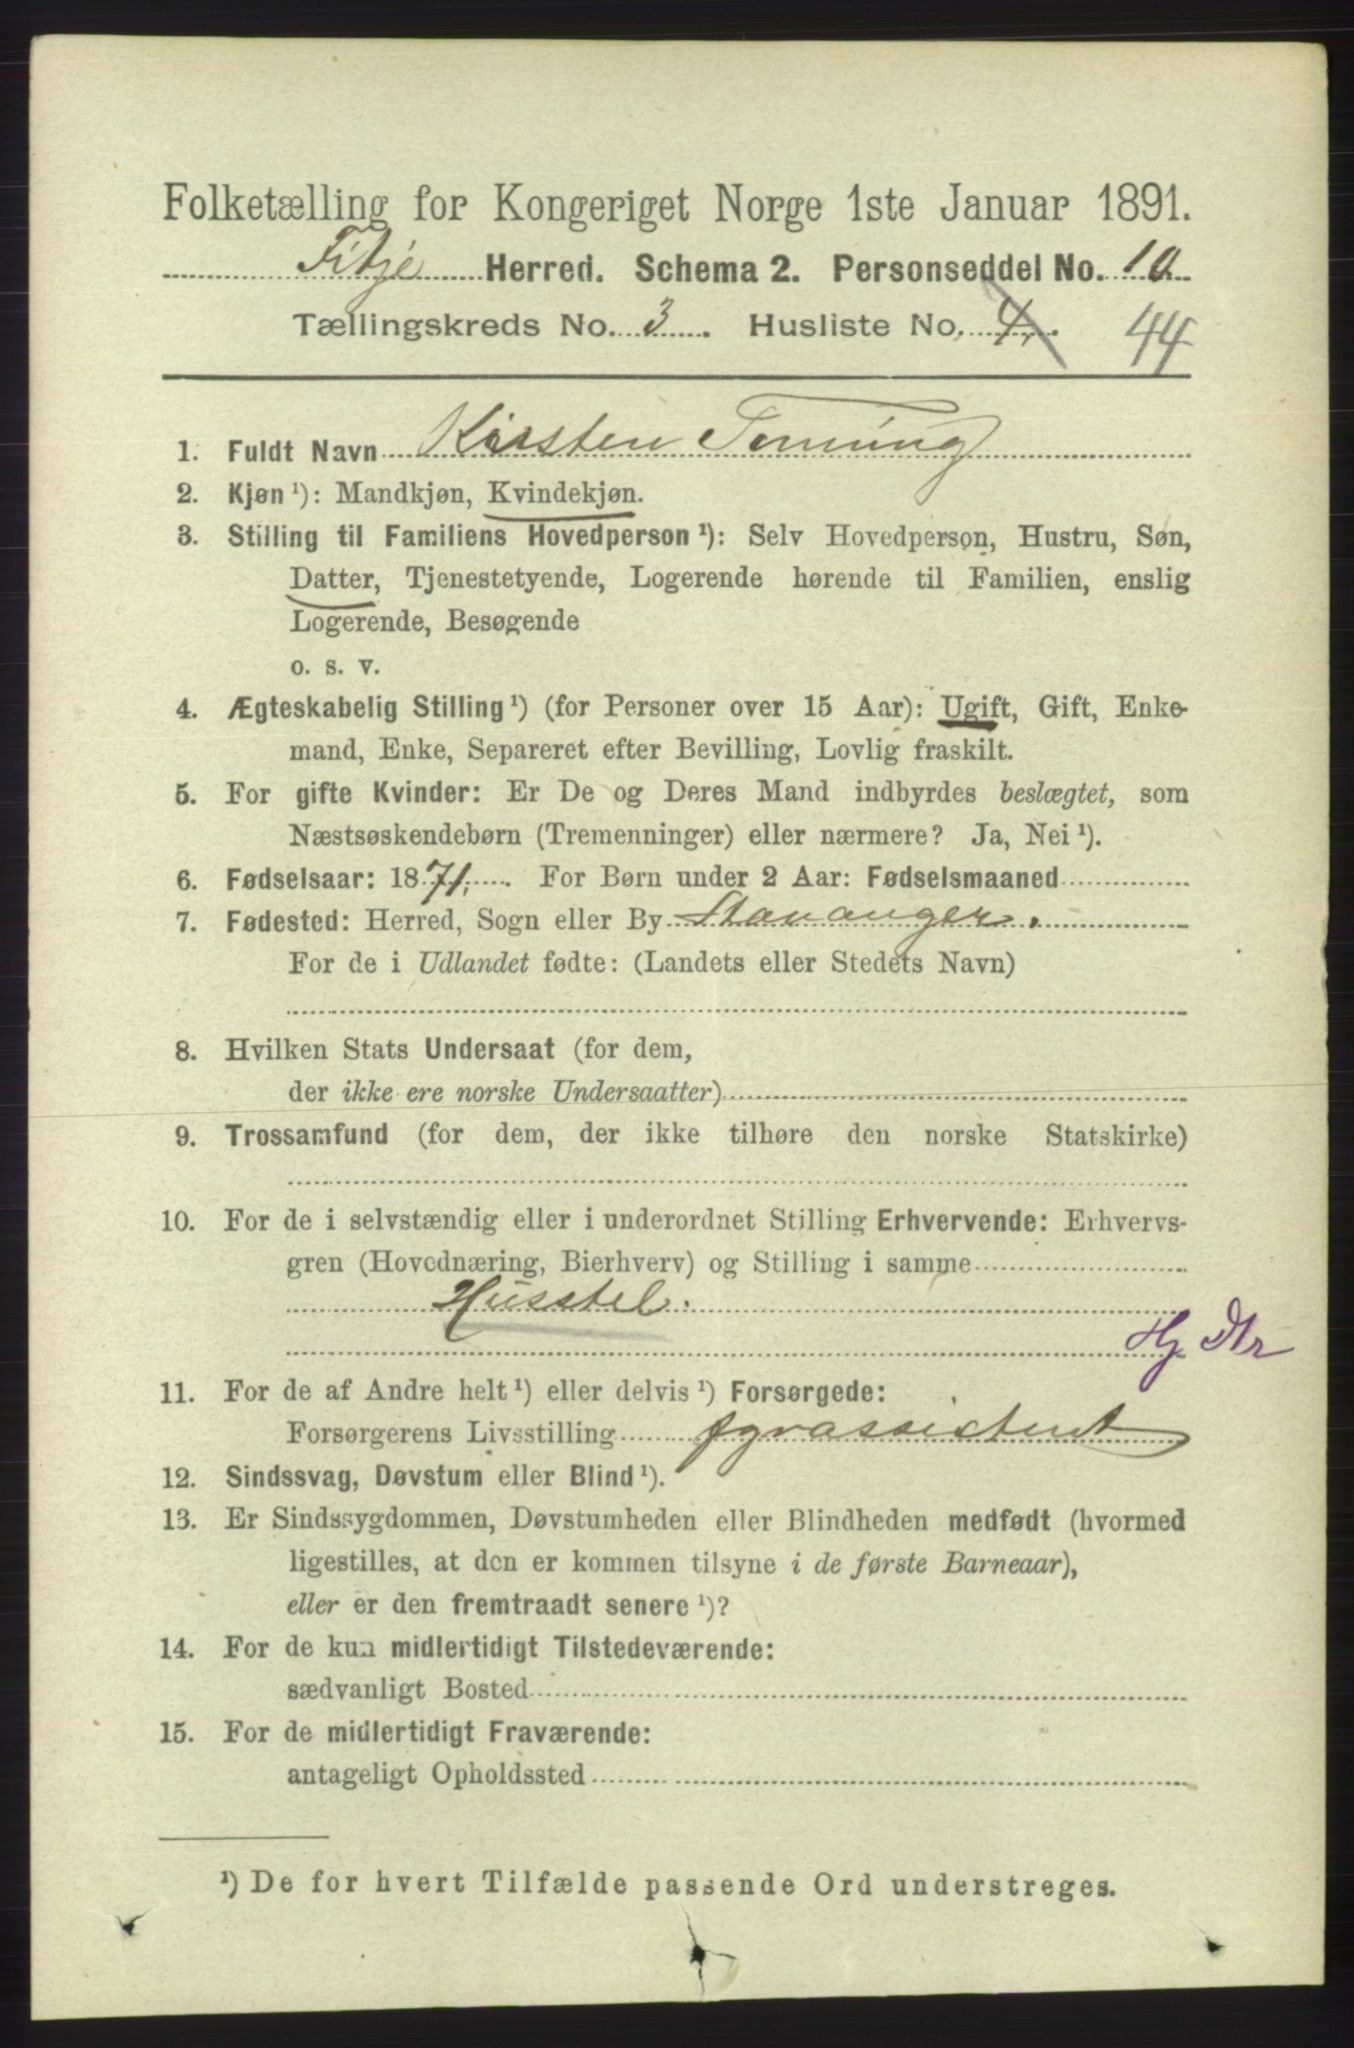 Folketælling for Kongeriget Norge 1ste Januar 1891.
Fitje Herred. Schema 2. Personseddel No. 10
Tællingskreds No. 3. Husliste No. 4. 44
1. Fuldt Navn Kirsten
2. Kjøn ¹): Mandkjøn, Kvindekjøn.
3. Stilling til Familiens Hovedperson ¹): Selv Hovedperson, Hustru, Søn,
Datter, Tjenestetyende, Logerende hørende til Familien, enslig
Logerende, Besøgende
o. s. v.
4. Ægteskabelig Stilling ¹) (for Personer over 15 Aar): Ugift, Gift, Enke-
mand, Enke, Separeret efter Bevilling, Lovlig fraskilt.
5. For gifte Kvinder: Er De og Deres Mand indbyrdes beslægtet, som
Næstsøskendebørn (Tremenninger) eller nærmere? Ja, Nei ¹).
6. Fødselsaar: 1871. For Børn under 2 Aar: Fødselsmaaned
7. Fødested: Herred, Sogn eller By Stavanger.
For de i Udlandet fødte: (Landets eller Stedets Navn)
8. Hvilken Stats Undersaat (for dem,
der ikke ere norske Undersaatter)
9. Trossamfund (for dem, der ikke tilhøre den norske Statskirke)
10. For de i selvstændig eller i underordnet Stilling Erhvervende: Erhvervs-
gren (Hovednæring, Bierhverv) og Stilling i samme
Husstel.
Hj Dtr
11. For de af Andre helt ¹) eller delvis ¹) Forsørgede:
Forsørgerens Livsstilling fyrassistent
12. Sindssvag, Døvstum eller Blind ¹).
13. Er Sindssygdommen, Døvstumheden eller Blindheden medfødt (hvormed
ligestilles, at den er kommen tilsyne i de første Barneaar),
eller er den fremtraadt senere ¹)?
14. For de kun midlertidigt Tilstedeværende:
sædvanligt Bosted
15. For de midlertidigt Fraværende:
antageligt Opholdssted
¹) De for hvert Tilfælde passende Ord understreges.